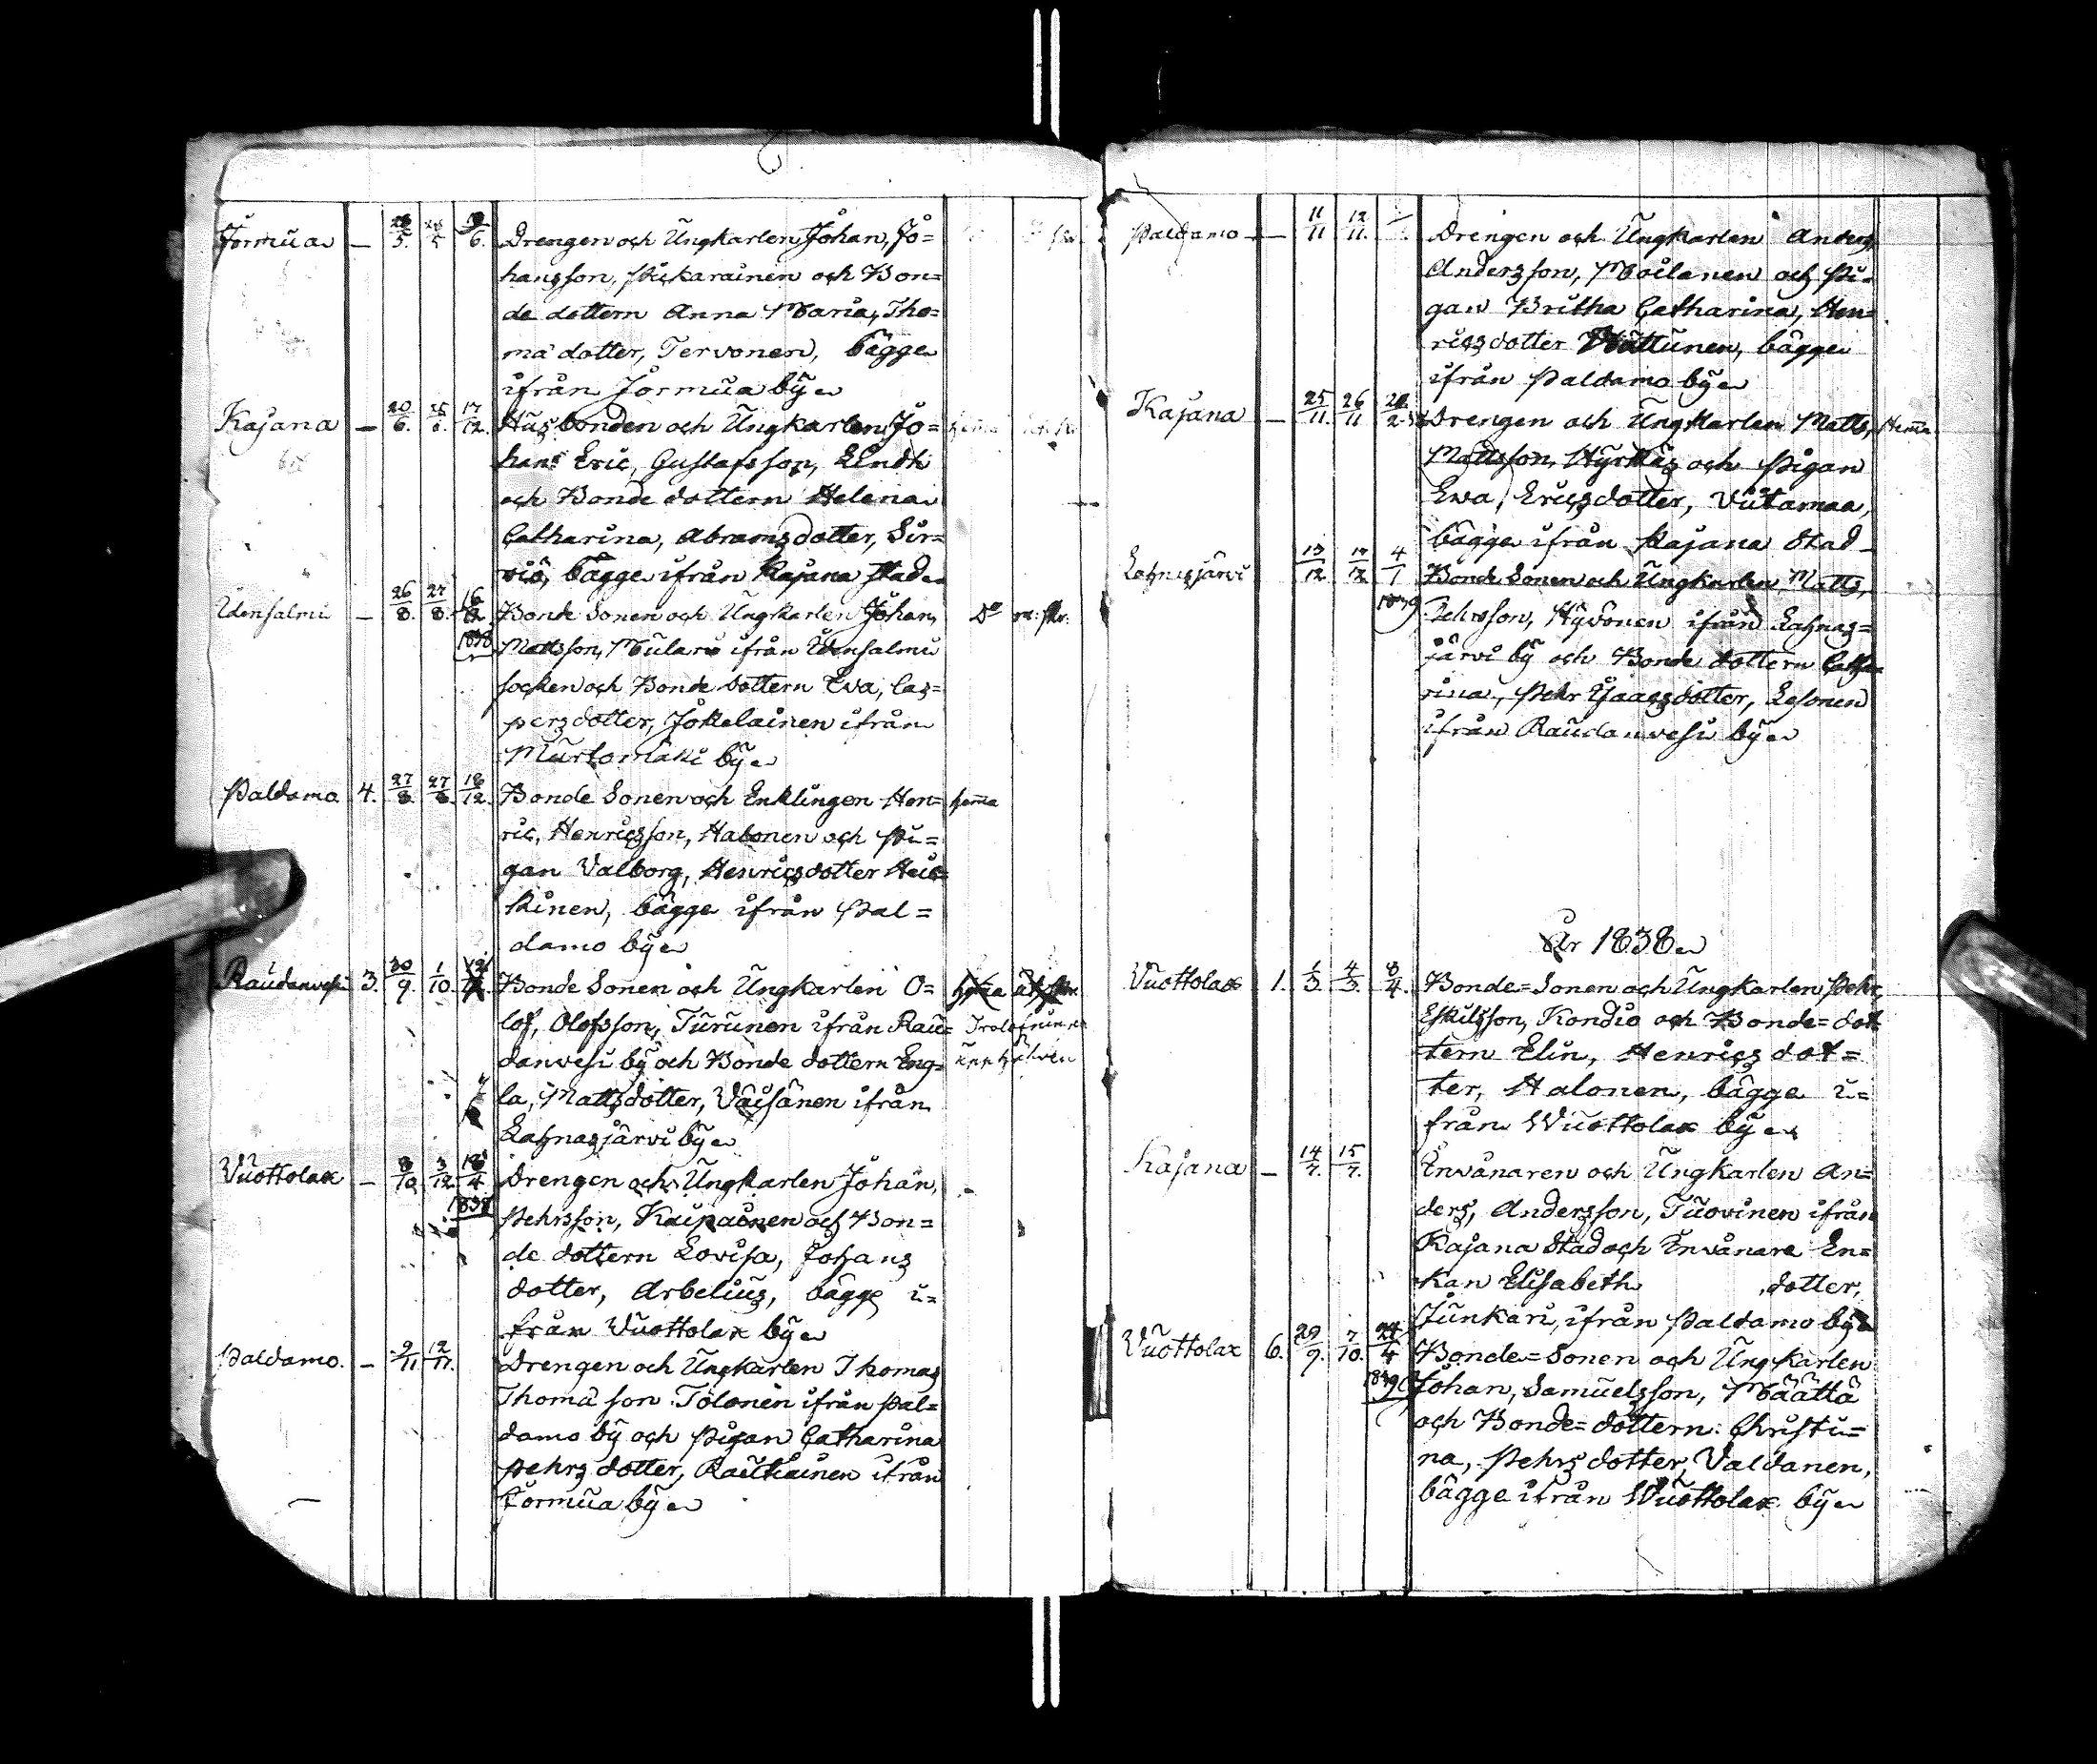 Jormua — 28/5. 28/5 19/6. Drengen och Ungkarlen Johan, Jo=
hansson, Pikarainen och Bon=
de dottern Anna Maria, Tho=
mä dotter, Tervonen, bägge
ifrån Jormua by
Kajana — 20/6. 25/6. 17/12. Husbonden och Ungkarlen Jo=
han Eric, Gustafsson, Lindh
och Bonde dottern Helena
Catharina, Abramsdotter, Sir=
viö, bägge ifrån Kajana Stad
Idensalmi — 26/8. 27/8. 16/2. Bonde Sonen och Ungkarlen Johan, Do
1838 Mattsson, Mulari ifrån Idensalmi
socken och Bonde dottern Eva, Cas=
persdotter, Jokelainen ifrån
Murtomäki by
Paldamo 4. 27/8. 27/8. 18/12. Bonde Sonen och Enklingen Hen= hema
ric, Henricsson, Halonen och Pi=
gan Valborg, Henricsdotter Heis=
kinen, bägge ifrån Pal=
damo by
Raudanvesi 3. 30/9. 1/10. Bonde Sonen och Ungkarlen O= hema
lof, Olofsson, Turunen ifrån Rau=
danvesi by och Bonde dottern Eng=
la, Mattsdotter, Väisänen ifrån
Lahnasjärvi by
Vuottolax — 8/10. 3/12. 18/4 Drengen och Ungkarlen Johan,
1838 Pehrsson, Kaipainen och Bon=
de dottern Lovisa, Johans
dotter, Arbelius, bägge i=
från Vuottolax by
Paldamo. — 9/11. 12/11. Drengen och Ungkarlen Thomas
Thomä son Tolonen ifrån Pal=
damo by och Pigan Catharina
Pehrs dotter, Rautiainen ifrån
Jormua by
Paldamo — 11/11 12/11. Drengen och Ungkarlen Anders,
Andersson, Moilanen och Pi=
gan Britha Catharina, Hen=
ricsdotter Huttunen, bägge
ifrån Paldamo by
Kajana — 25/11. 26/11 Drengen och Ungkarlen Matts, Hema
Mattsson, Hyrkäs och Pigan
Ewa, Ericsdotter, Viitamaa,
bägge ifrån Kajana Stad
Lahnasjärvi 13/12. 14/12 4/1 Bonde Sonen och Ungkarlen Matts,
1839 Pehrsson, Hyvönen ifrån Lahnas=
järvi by och Bonde dottern Catha
rina, Pehr Isaacsdotter, Lesonen
ifrån Raudanvesi by
År 1838
Vuottolax 1. 1/3. 4/3. 8/4. Bonde=Sonen och Ungkarlen Pehr,
Eskilsson, Kondio och Bonde=dot
tern Elin, Henrics dot=
ter, Halonen, bägge i=
från Wuottolax by
Kajana — 14/7. 15/7. Invånaren och Ungkarlen An=
ders, Andersson, Tuovinen ifrån
Kajana Stad och Invånare En=
kan Elisabeth dotter,
Junkari, ifrån Paldamo by
Vuottolax 6. 29/9. 7/10. 24/4 Bonde=Sonen och Ungkarlen
1839 Johan, Samuelsson, Määttä
och Bonde=dottern Christi=
na, Pehrs dotter, Valdanen,
bägge ifrån Wuottolax by